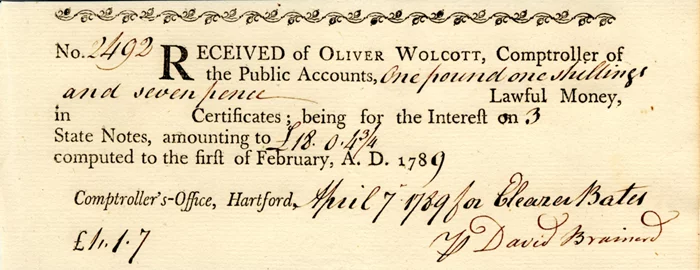 No. 2492 RECEIVED of OLIVER WOLCOTT, Comptroller of
the Public Accounts, One pound one shillings
and seven pence Lawful Money,
in Certificates; being for the Intereſt on 3
State Notes, amounting to £18. 0. 4¾
computed to the firſt of February, A. D. 1789
Comptroller's-Office, Hartford, April 7th 1789 for Eleazer Bates
£1. 1. 7 David Brainerd